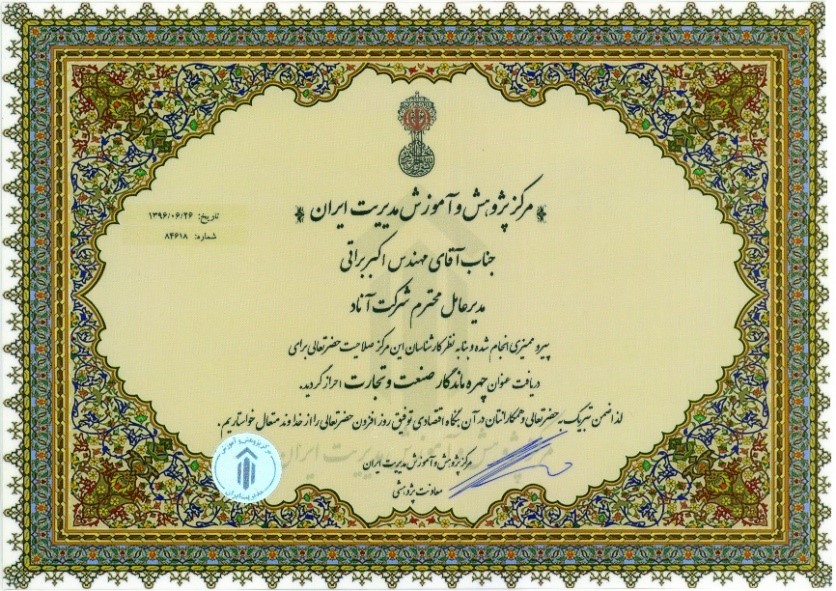 مرکز پژوهش و آموزش مدیریت ایران
تاریخ: ۱۳۹۶/۰۶/۲۶
شماره: ۸۴۶۱۸
جناب آقای مهندس اکبر براتی
مدیرعامل محترم شرکت آناد
پیرو ممیزی انجام شده و بنابه نظر کارشناسان این مرکز صلاحیت حضرتعالی برای
دریافت عنوان چهره ماندگار صنعت و تجارت احراز گردید.
لذا ضمن تبریک به حضرتعالی و همکارانتان در آن بنگاه اقتصادی توفیق روز افزون حضرتعالی را از خداوند متعال خواستاریم.
مرکز پژوهش و آموزش مدیریت ایران
معاونت پژوهشی
مرکز پژوهش و آموزش
مدیریت ایران
مرکز پژوهش و آموزش مدیریت ایران